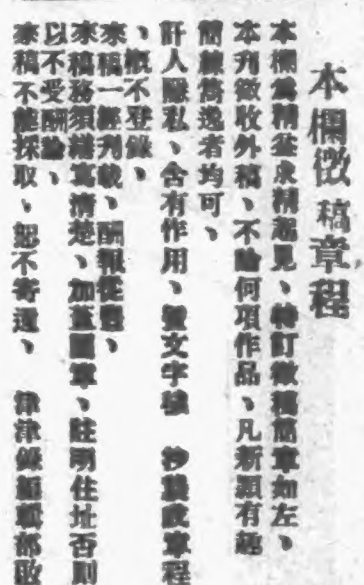 本欄徵稿章程
本欄為精益求精起見、特訂徵稿簡章如左、
本刊徵收外稿、不論何項作品、凡新穎有趣
簡練雋逸者均可、
訐人隱私、含有作用、文字 抄襲或章程
、概不登錄、
來稿一經刊載、酬報從豐、
來稿務須繕寫清楚、加蓋圖章、註明住址否則
以不受酬論、
來稿不能採取、恕不寄還、 津津錄編輯部啟